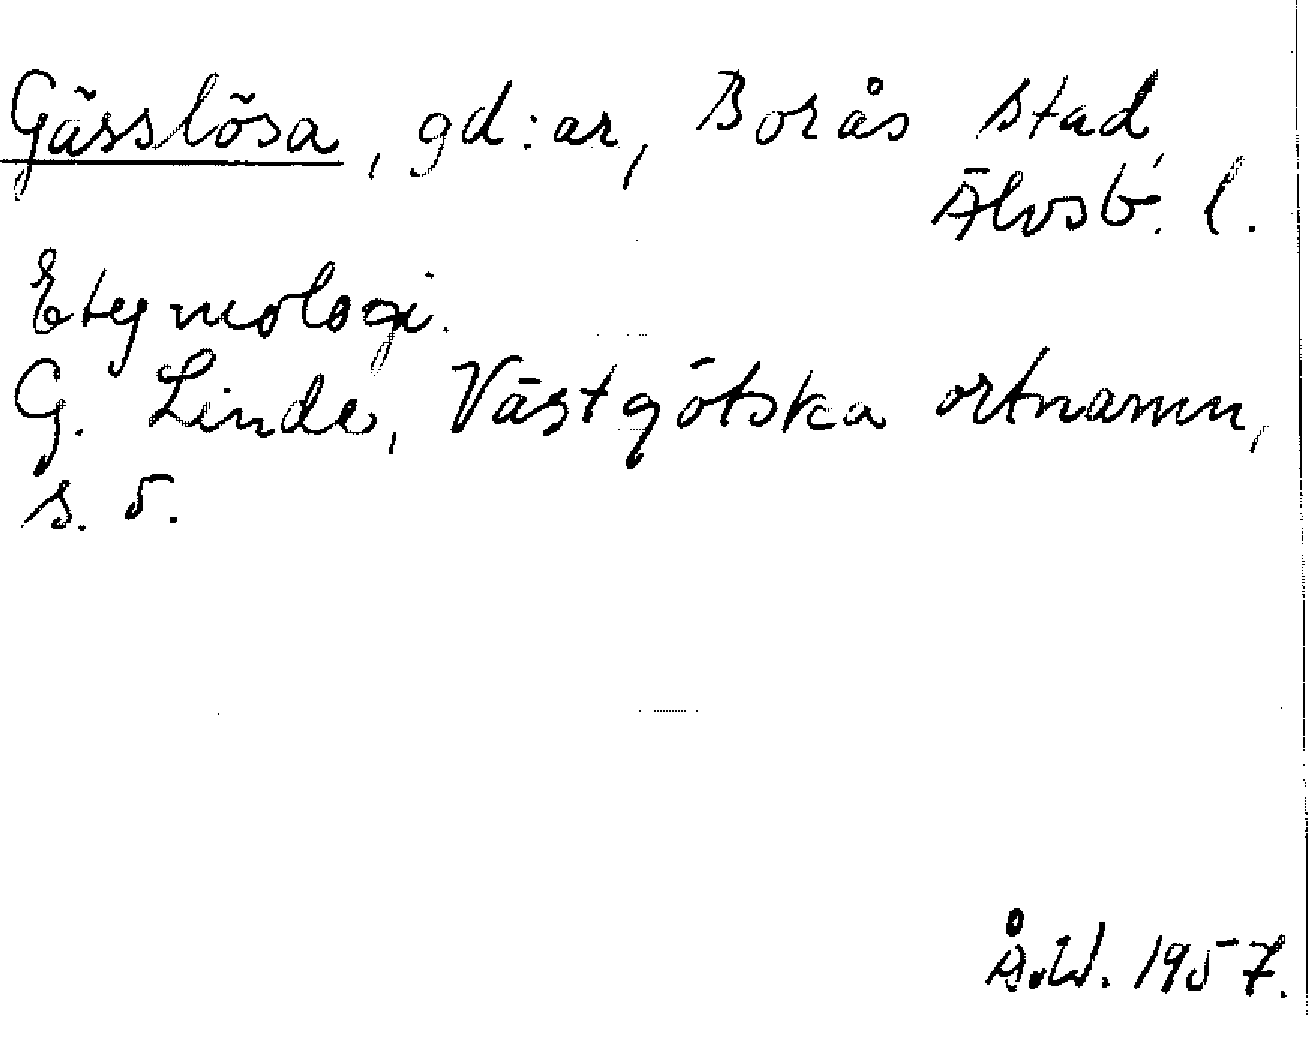 Gässlösa, gd:ar, Borås stad,
Älvsb. l.
Etymologi.
G. Linde, Västgötska ortnamn,
s. 5.
Å.W. 1957.